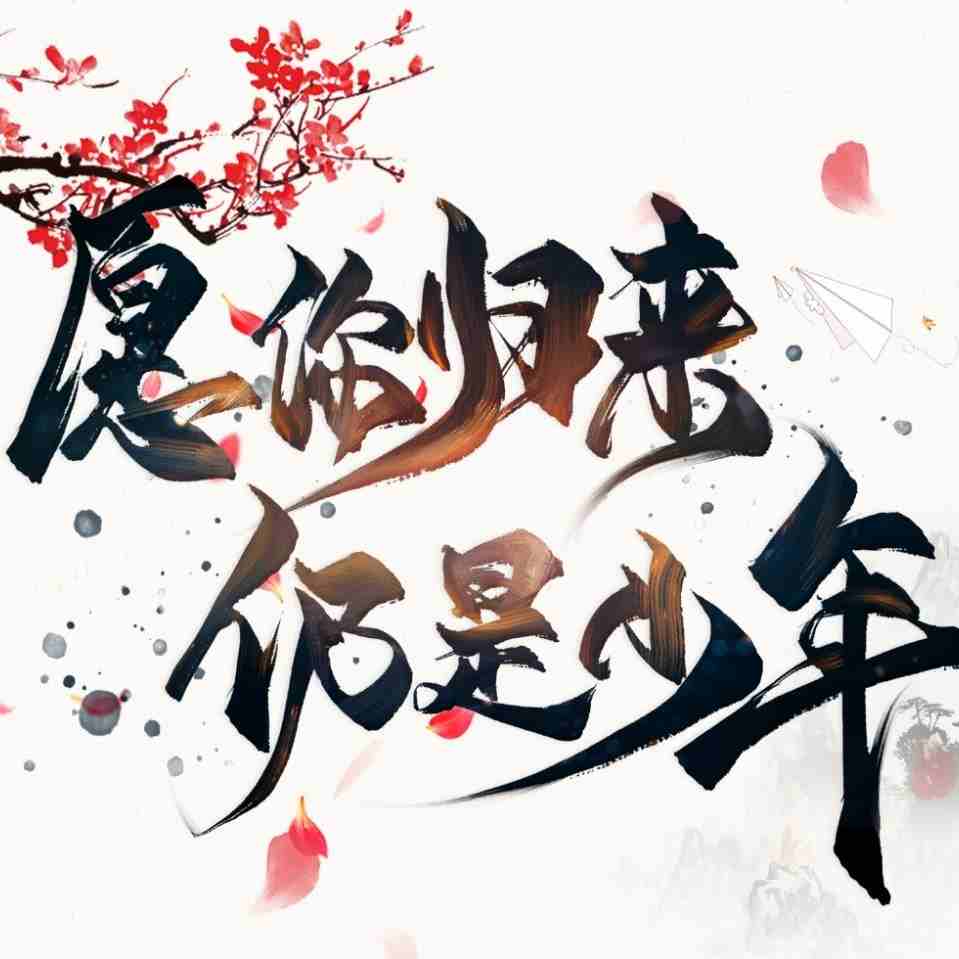 愿你归来
仍是少年